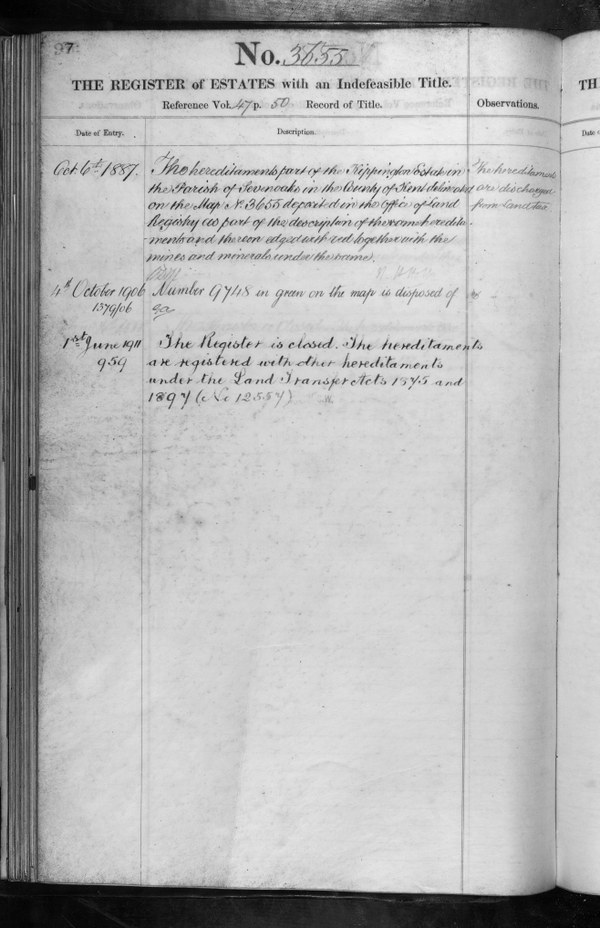 97
No. 3655
THE REGISTER of ESTATES with an Indefeasible Title.
Reference Vol. 47 p. 50 Record of Title.
Observations.
Date of Entry.
Description.
Oct 6th 1887.
The hereditaments part of the Kippington Estate in
the Parish of Sevenoaks in the County of Kent delineated
on the Map No. 3655 deposited in the Office of Land
Registry as part of the description of the same heredita-
ments and thereon edged with red together with the
mines and minerals under the same.
The hereditaments
are discharged
from Land tax
4th October 1906
1379/06
Number 9748 in green on the map is disposed of
1st June 1911
959
The Register is closed. The hereditaments
are registered with other hereditaments
under the Land Transfer Acts 1875 and
1897 (No 12557)
TH
Date